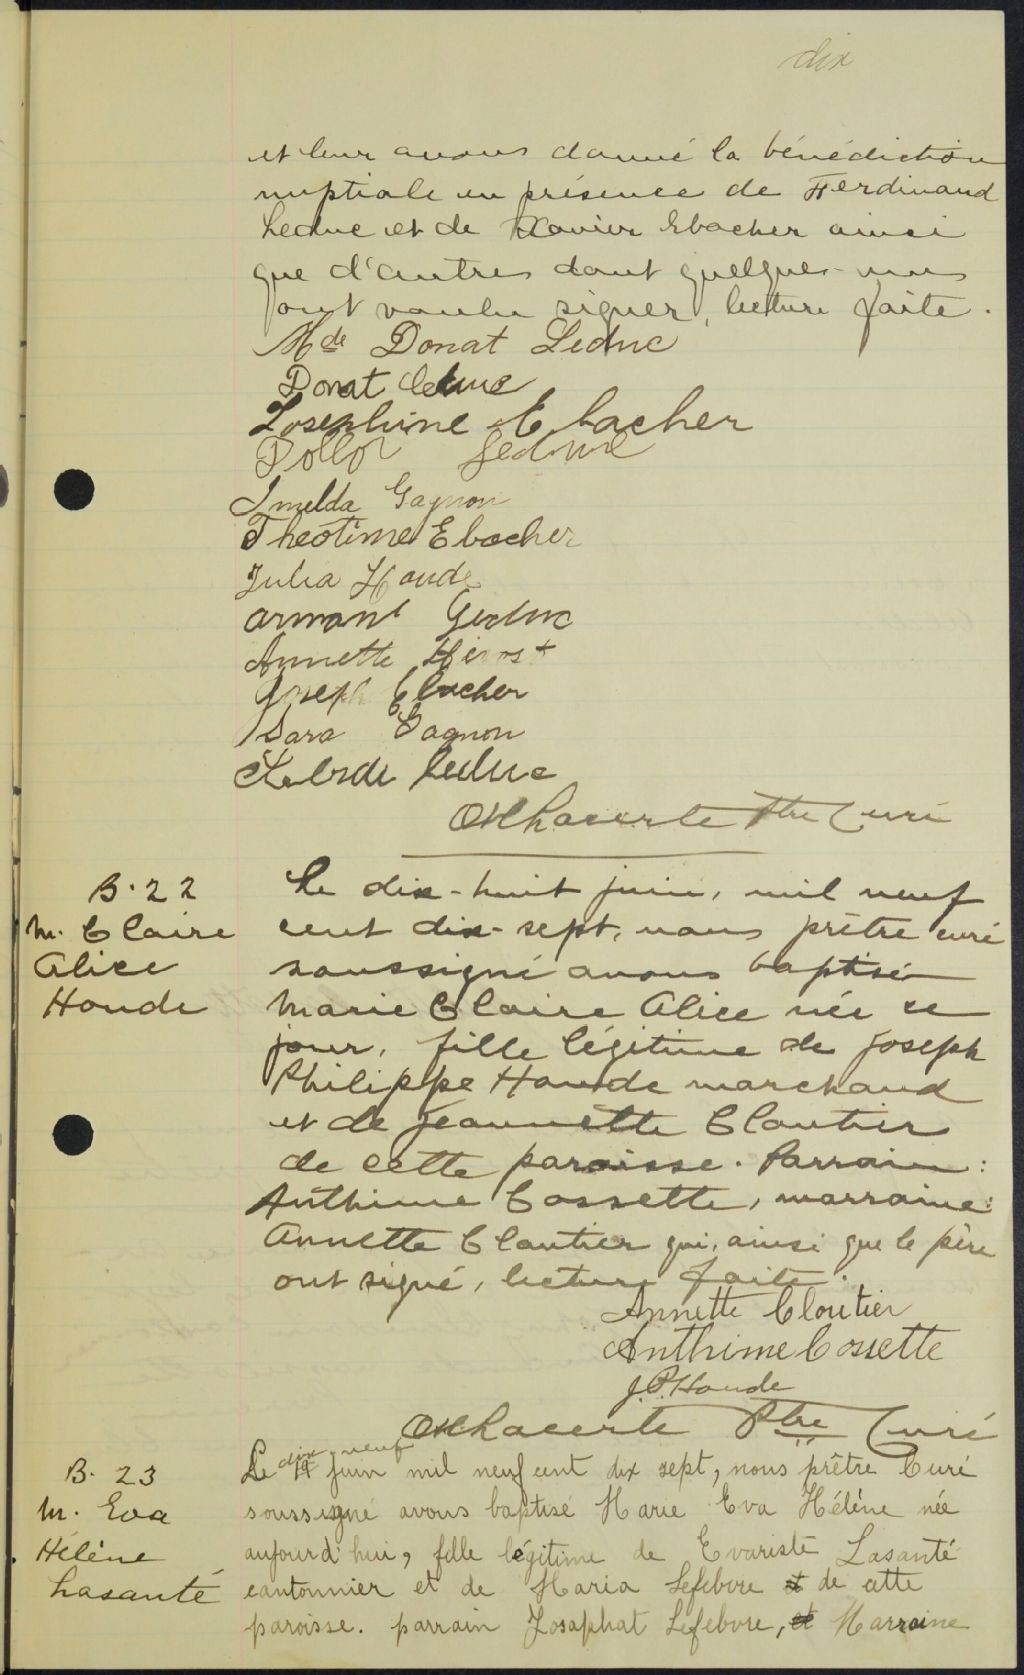 dix
et leur avons donné la bénédiction
nuptiale en présence de Ferdinand
Leduc et de Xavier Ebacher ainsi
que d'autres dont quelques-uns
ont voulu signer, lecture faite.
Mde Donat Leduc
Donat Leduc
Josephine Ebacher
Leduc
Imelda Gagnon
Théotime Ebacher
Julia Houde
Armant Leduc
Annette
Joseph Ebacher
Sara Gagnon
Leduc
Lacerte Ptre Curé
B. 22
M. Claire
Alice
Houde
Le dix-huit juin, mil neuf
cent dix-sept, nous prêtre curé
soussigné avons baptisé
Marie Claire Alice née ce
jour, fille légitime de Joseph
Philippe Houde marchand
et de Jeannette Cloutier
de cette paroisse. Parrain:
Anthime Cossette, marraine:
Annette Cloutier qui, ainsi que le père
ont signé, lecture faite.
Annette Cloutier
Anthime Cossette
J.P. Houde
Lacerte Ptre Curé
B. 23
M. Eva
Hélène
Lasanté
Le dix neuf Juin mil neuf cent dix sept, nous prêtre Curé
soussigné avons baptisé Marie Eva Hélène née
aujourd'hui, fille légitime de Evariste Lasanté
cantonnier et de Maria Lefebvre et de cette
paroisse. parrain Josaphat Lefebvre, et Marraine